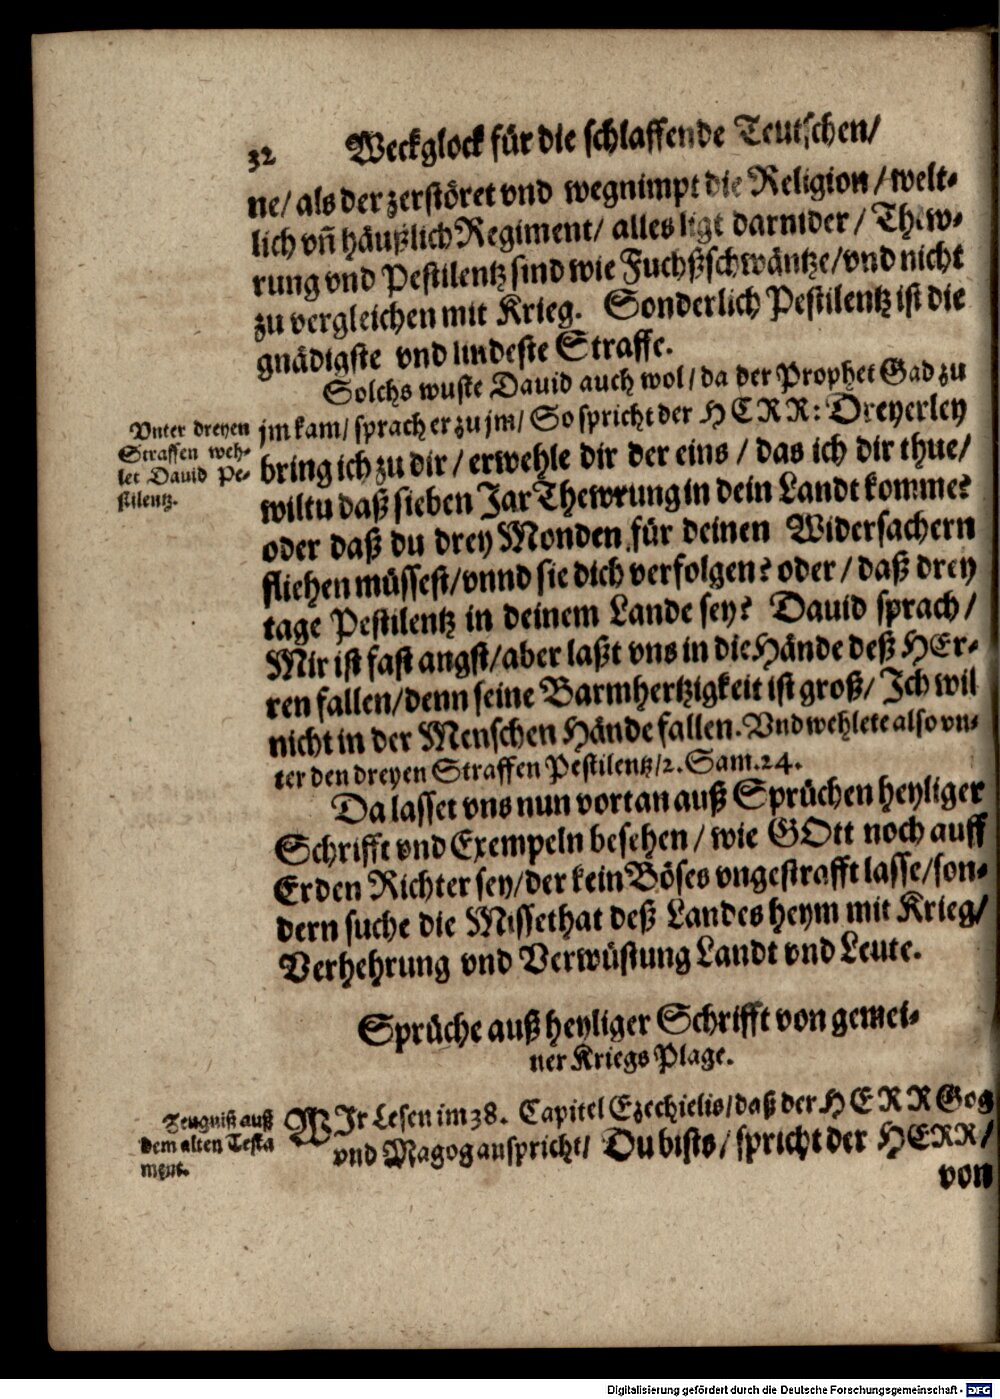 32 Weckglock für die schlaffende Teutschen/
ne/ als der zerstöret vnd wegnimpt die Religion / welt-
lich vñ häußlich Regiment/ alles ligt darnider / Thew-
rung vnd Pestilentz sind wie Fuchßschwäntze/vnd nicht
zu vergleichen mit Krieg. Sonderlich Pestilentz ist die
gnädigste vnd lindeste Straffe.
Solchs wuste Dauid auch wol / da der Prophet Gad zu
jm kam/ sprach er zu jm/ So spricht der HERR: Dreyerley
bring ich zu dir / erwehle dir der eins / das ich dir thue/
wiltu daß sieben Jar Thewrung in dein Landt komme?
oder daß du drey Monden für deinen Widersachern
fliehen müssest/vnnd sie dich verfolgen? oder / daß drey
tage Pestilentz in deinem Lande sey? Dauid sprach/
Mir ist fast angst/aber laßt vns in die Hände deß HEr-
ren fallen/denn seine Barmhertzigkeit ist groß/ Ich wil
nicht in der Menschen Hände fallen. Vnd wehlete also vn-
ter den dreyen Straffen Pestilentz/2. Sam.24.
Vnter dreyen
Straffen weh-
let Dauid Pe-
stilentz.
Da lasset vns nun vortan auß Sprüchen heyliger
Schrifft vnd Exempeln besehen / wie GOtt noch auff
Erden Richter sey/der kein Böses vngestrafft lasse/son-
dern suche die Missethat deß Landes heym mit Krieg/
Verhehrung vnd Verwüstung Landt vnd Leute.
Sprüche auß heyliger Schrifft von gemei-
ner Kriegs Plage.
Zeugniß auß
dem alten Testa
ment.
WIr Lesen im 38. Capitel Ezechielis/daß der HERR Gog
vnd Magog anspricht/ Du bists / spricht der HERR/
von
Digitalisierung gefördert durch die Deutsche Forschungsgemeinschaft - DFG